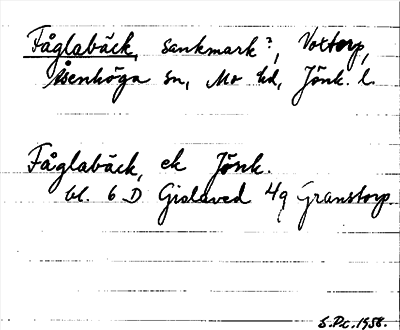 Fåglabäck, sankmark?, Voxtorp,
Åsenhöga sn, Mo hd, Jönk. l.
Fåglabäck, ek Jönk.
bl. 6 D Gislaved 4g Granstorp
S.P.c. 1958.